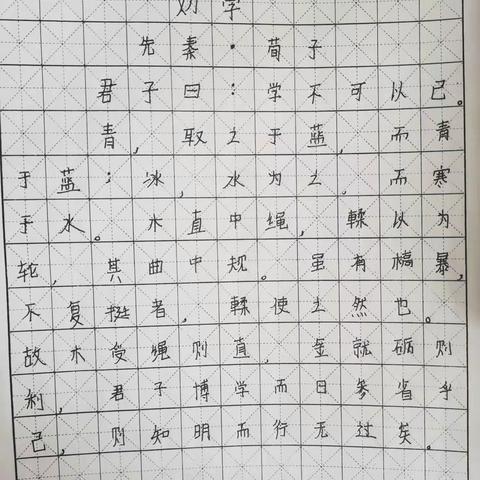 劝学
先秦·荀子
君子曰：学不可以已。
青，取之于蓝，而青
于蓝；冰，水为之，而寒
于水。木直中绳，輮以为
轮，其曲中规。虽有槁暴，
不复挺者，輮使之然也。
故木受绳则直，金就砺则
利，君子博学而日参省乎
己，则知明而行无过矣。